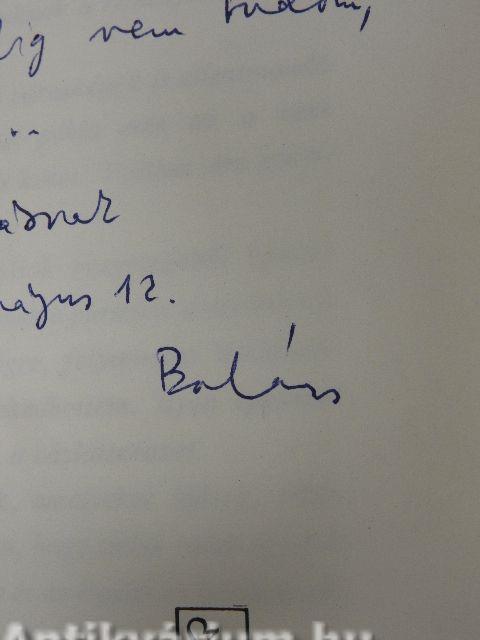 dig nem tudom,
...
ásnak
május 12.
Balázs
Antikvárium.hu